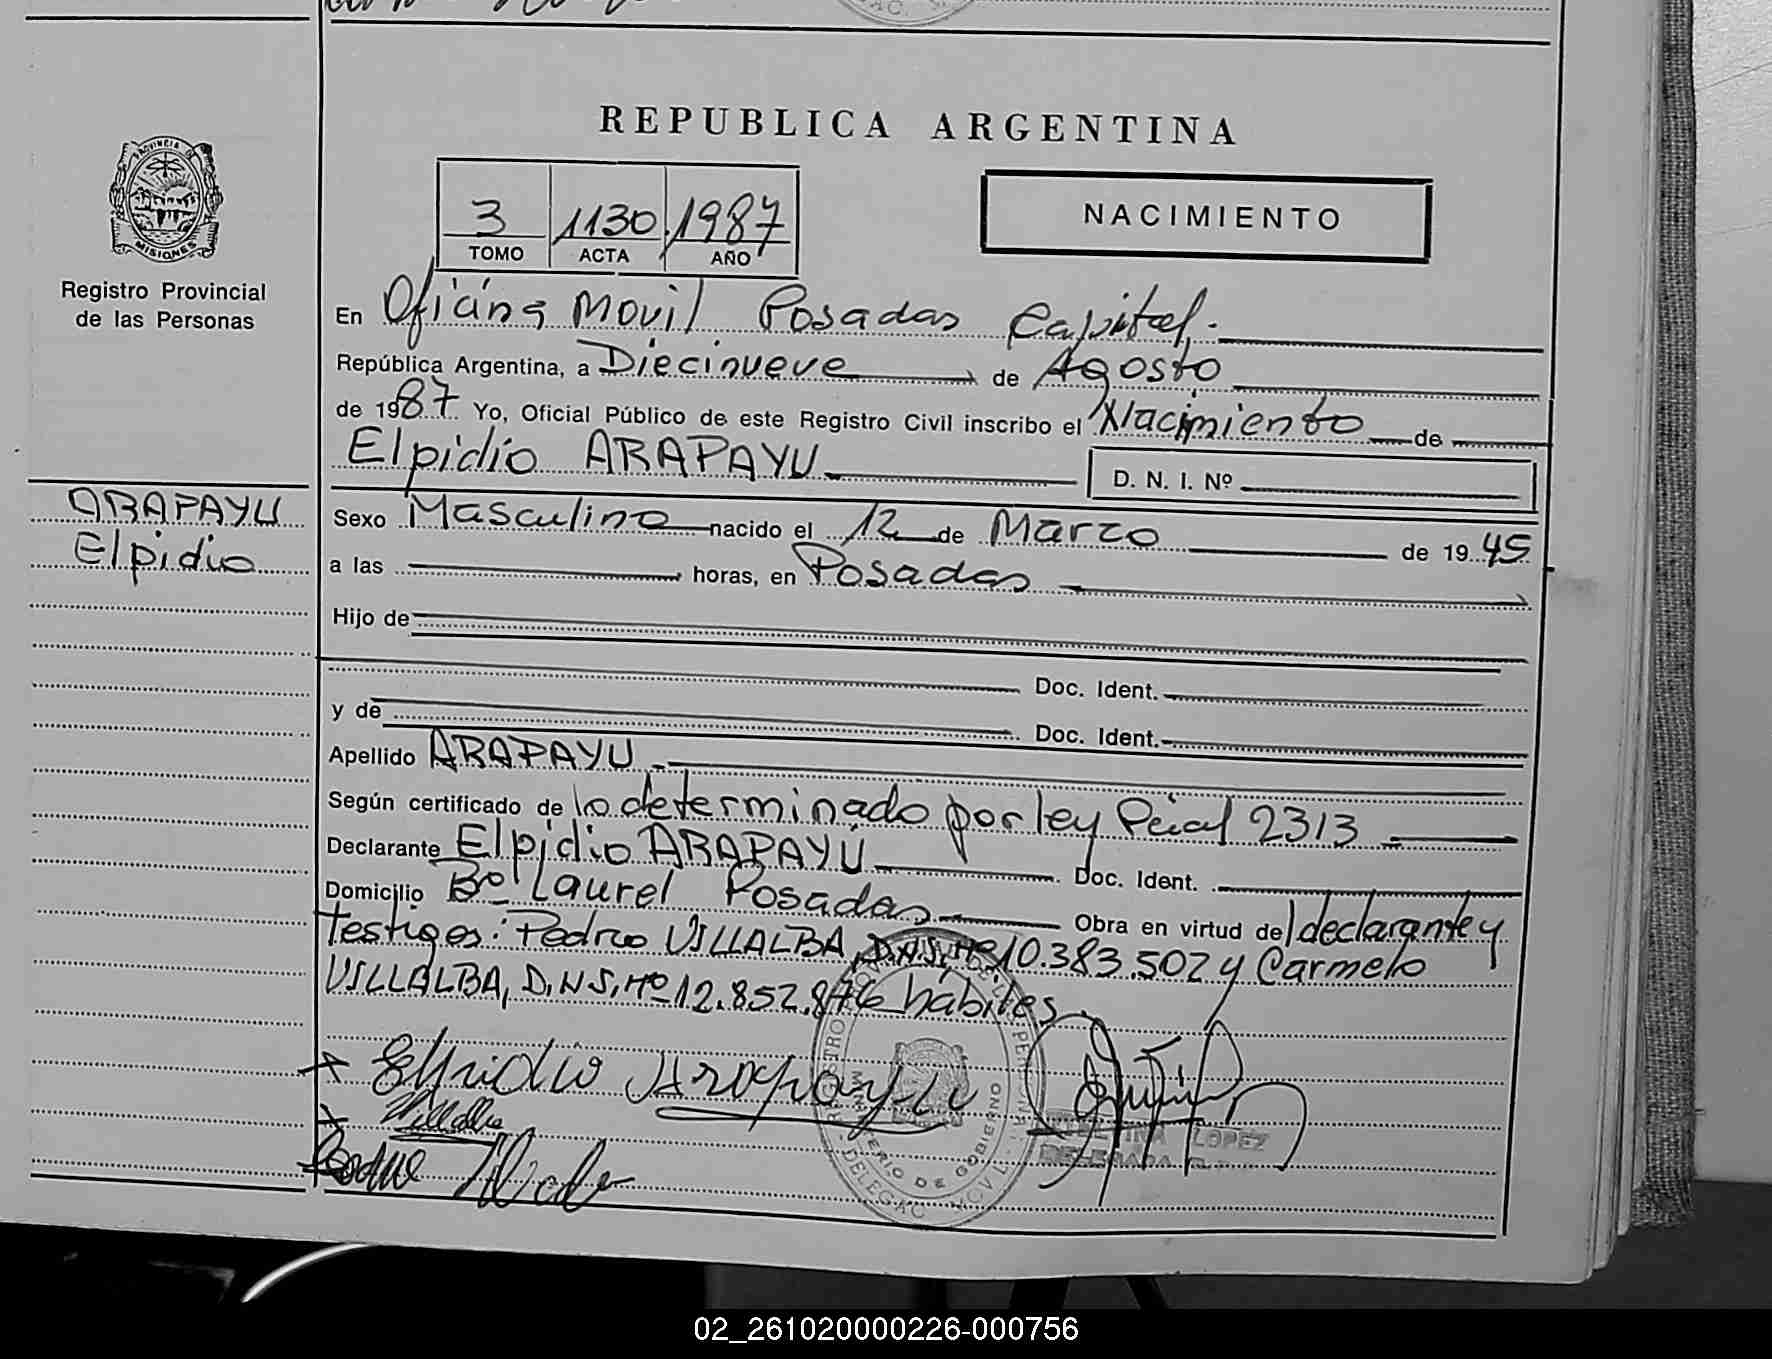 REPUBLICA ARGENTINA
PROVINCIA DE
MISIONES
Registro Provincial
de las Personas
3 1130 1987
TOMO ACTA AÑO
NACIMIENTO
En Oficina Movil Posadas Capital.
República Argentina, a Diecinueve de Agosto
de 1987 Yo, Oficial Público de este Registro Civil inscribo el Nacimiento de
Elpidio ARAPAYU D. N. I. Nº
ARAPAYU
Elpidio
Sexo Masculino nacido el 12 de Marzo de 1945
a las horas, en Posadas
Hijo de
Doc. Ident.
y de Doc. Ident.
Apellido ARAPAYU
Según certificado de lo determinado por ley Pcial 2313
Declarante Elpidio ARAPAYU Doc. Ident.
Domicilio Bº Laurel Posadas Obra en virtud del declarante y
testigos: Pedro VILLALBA, D.N.I. Nº 10.383.502 y Carmelo
VILLALBA, D.N.I. Nº 12.852.876 hábiles
Elpidio Arapayu
Villalba
LOPEZ
DELEGADA
MINISTERIO DE GOBIERNO
DELEGAC. MOVIL
02_261020000226-000756